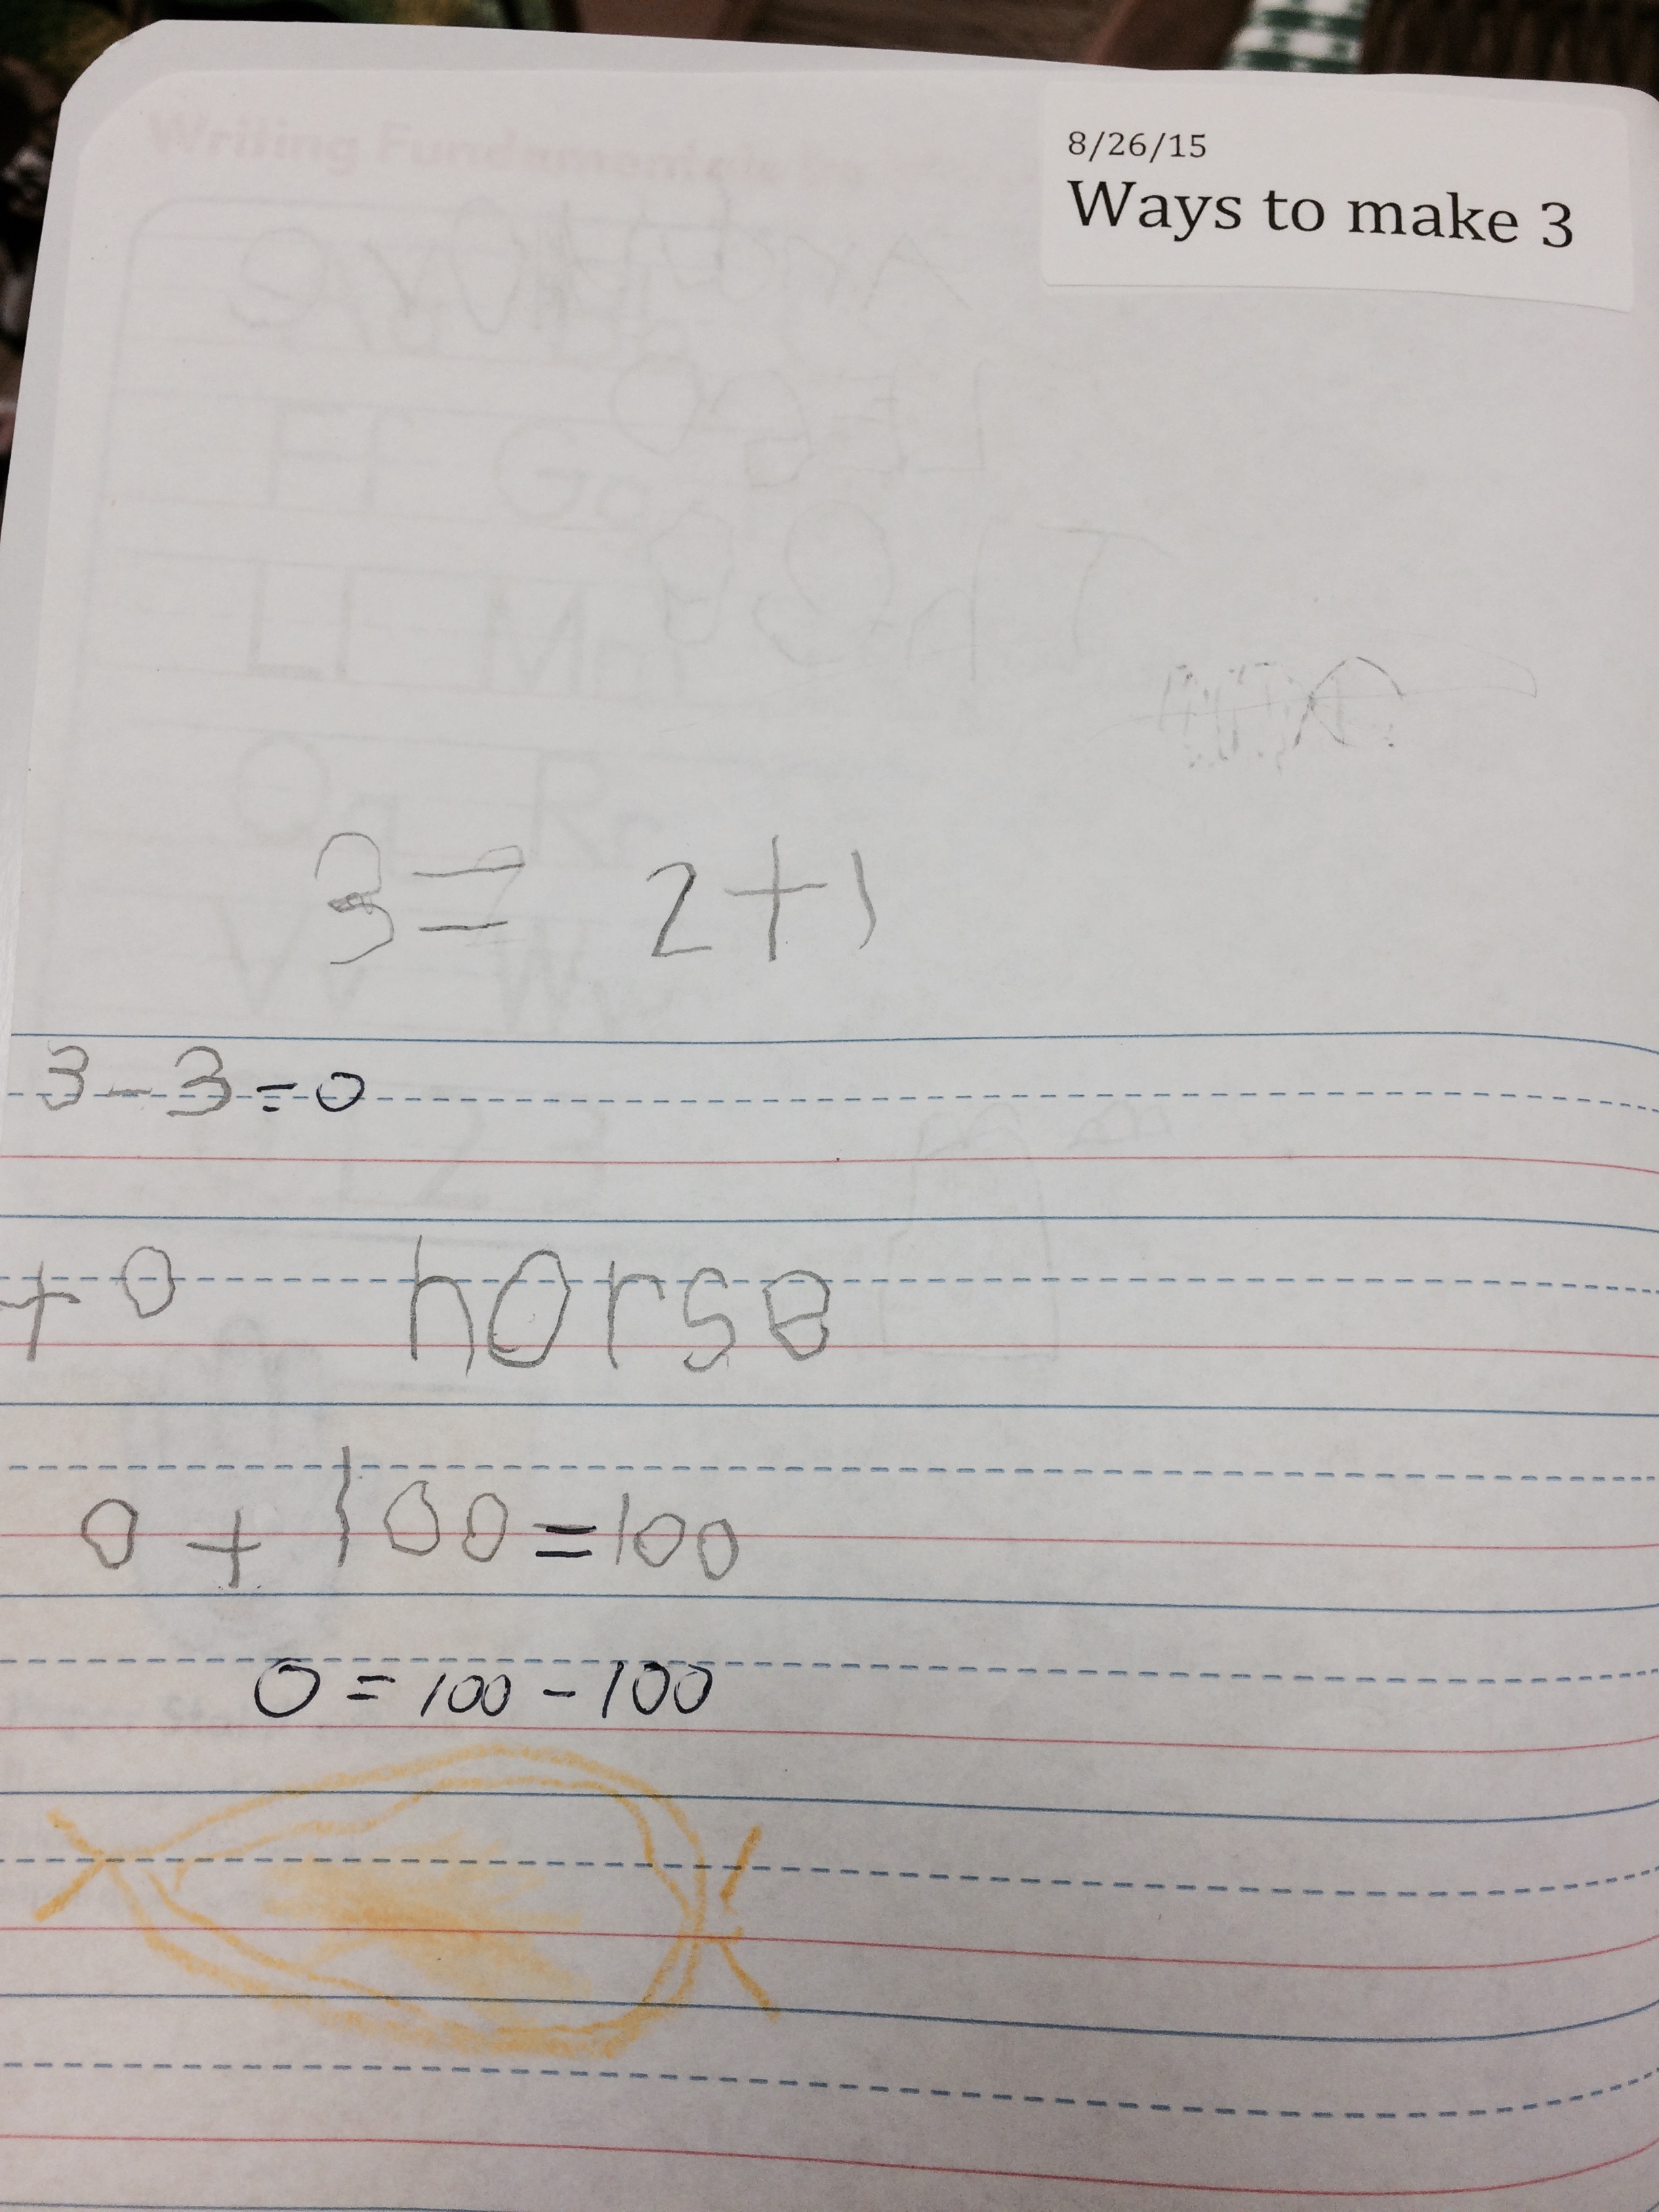 Writing Fundamentals
8/26/15
Ways to make 3
3= 2+1
3-3=0
+0 horse
0+100=100
0=100-100